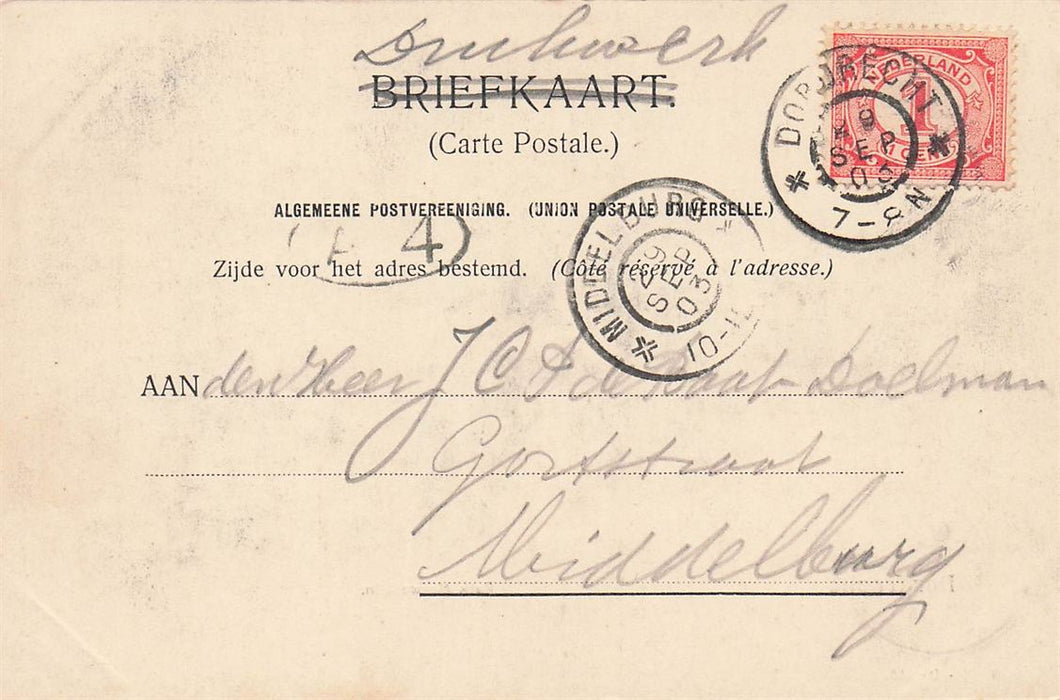 Drukwerk
BRIEFKAART.
(Carte Postale.)
ALGEMEENE POSTVEREENIGING. (UNION POSTALE UNIVERSELLE.)
Zijde voor het adres bestemd. (Côté réservé à l'adresse.)
AAN den Heer J C de Raat- Doelman
Gortstraat
Middelburg
NEDERLAND
1
1 CENT
DORDRECHT
9
SEP
03
7-8 N
MIDDELBURG
9
SEP
03
10-
4